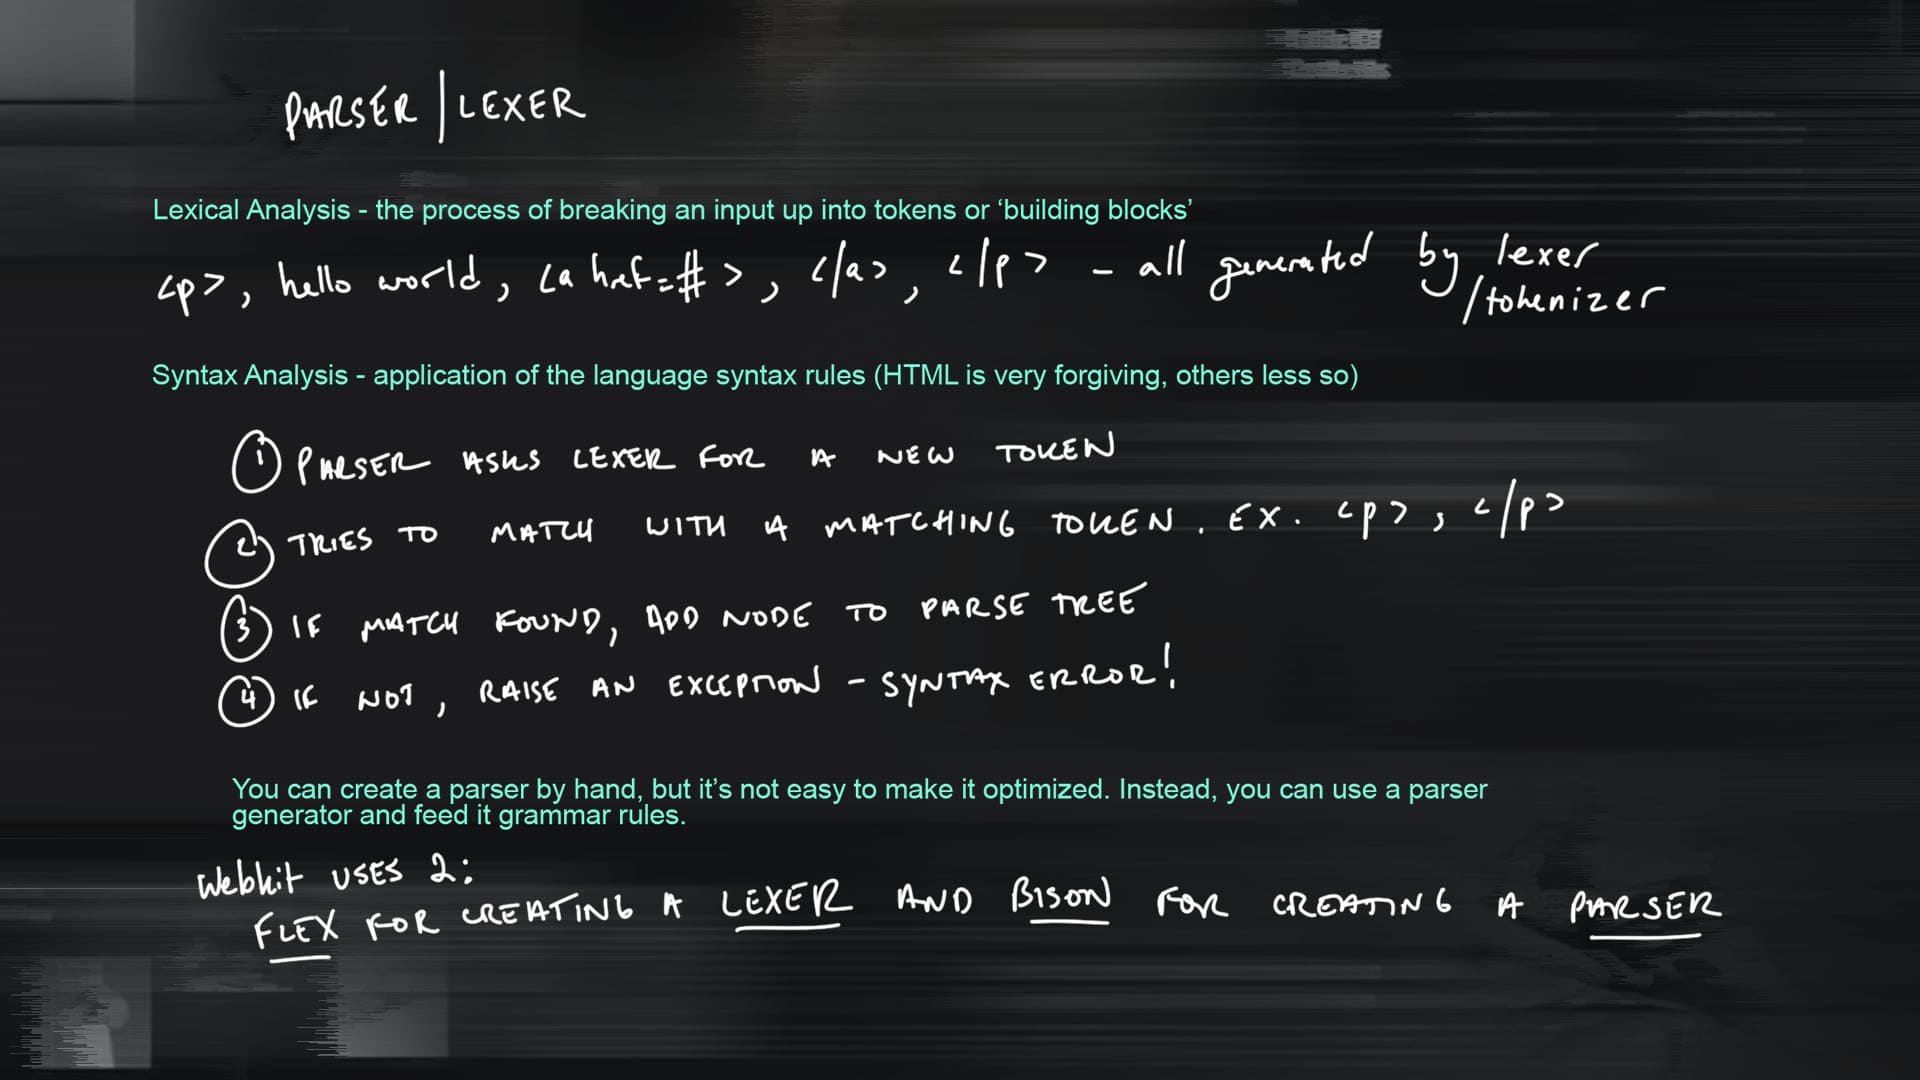 PARSER | LEXER
Lexical Analysis - the process of breaking an input up into tokens or ‘building blocks’
<p>, hello world, <a href=#>, </a>, </p> - all generated by lexer
/tokenizer
Syntax Analysis - application of the language syntax rules (HTML is very forgiving, others less so)
1 PARSER ASKS LEXER FOR A NEW TOKEN
2 TRIES TO MATCH WITH A MATCHING TOKEN. EX. <p>, </p>
3 IF MATCH FOUND, ADD NODE TO PARSE TREE
4 IF NOT, RAISE AN EXCEPTION - SYNTAX ERROR!
You can create a parser by hand, but it’s not easy to make it optimized. Instead, you can use a parser
generator and feed it grammar rules.
Webkit USES 2:
FLEX FOR CREATING A LEXER AND BISON FOR CREATING A PARSER